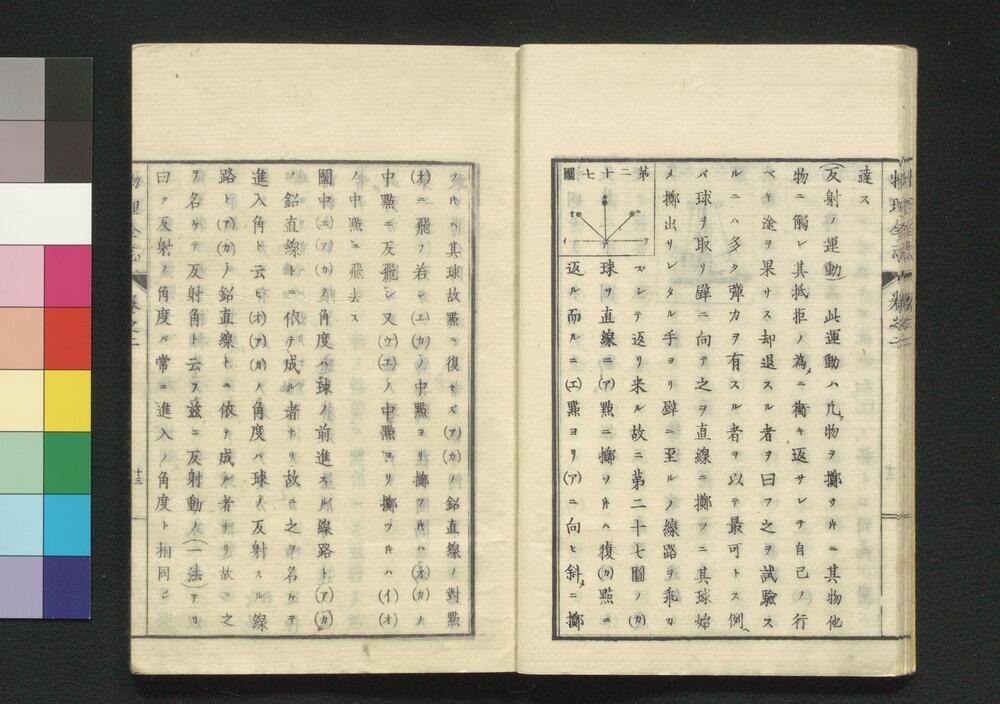 物理全志 卷之二
達ス
(反射ノ運動)此運動ハ凡物ヲ擲ツ𪜈ニ其物他
物ニ觸レ其抵拒ノ為メニ衝キ返サレテ自己ノ行
ベキ途ヲ果サス却退スル者ヲ曰フ之ヲ試驗ス
ルニハ多ク彈力ヲ有スル者ヲ以テ最可トス例
バ球ヲ取リ壁ニ向テ之ヲ直線ニ擲ツニ其球始
メ擲出サレタル手ヨリ壁ニ至ルノ線路ヲ乖カ
ズシテ返リ来ル故ニ第二十七圖ノ(カ)
球ヲ直線ニ(ア)點ニ擲ツ𪜈ハ復(カ)點ニ
返ル而ルニ(エ)點ヨリ(ア)ニ向ヒ斜メニ擲
第二
十七
圖
ツ𪜈ハ其球故點ニ復セズ(ア)(カ)ノ銘直線ノ對點
(オ)ニ飛フ若シ(エ)(カ)ノ中點ヨリ擲ツ𪜈ハ(オ)(カ)ノ
中點ニ反飛シ又(ウ)(エ)ノ中點ヨリ擲ツ𪜈ハ(イ)(オ)
ノ中點ニ飛去ス
圖中(エ)(ア)(カ)ノ角度ハ球ノ前進スル線路ト(ア)(カ)
ノ銘直線トニ依テ成ル者ナリ故ニ之ヲ名ケテ
進入角ト云ヒ(オ)(ア)(カ)ノ角度ハ球ノ反射スル線
路ト(ア)(カ)ノ銘直線トニ依テ成ル者ナリ故ニ之
ヲ名ケテ反射角ト云フ茲ニ反射動ノ(一法)アリ
曰ク反射ノ角度ハ常ニ進入ノ角度ト相同シ
物理全志 卷之二 十三